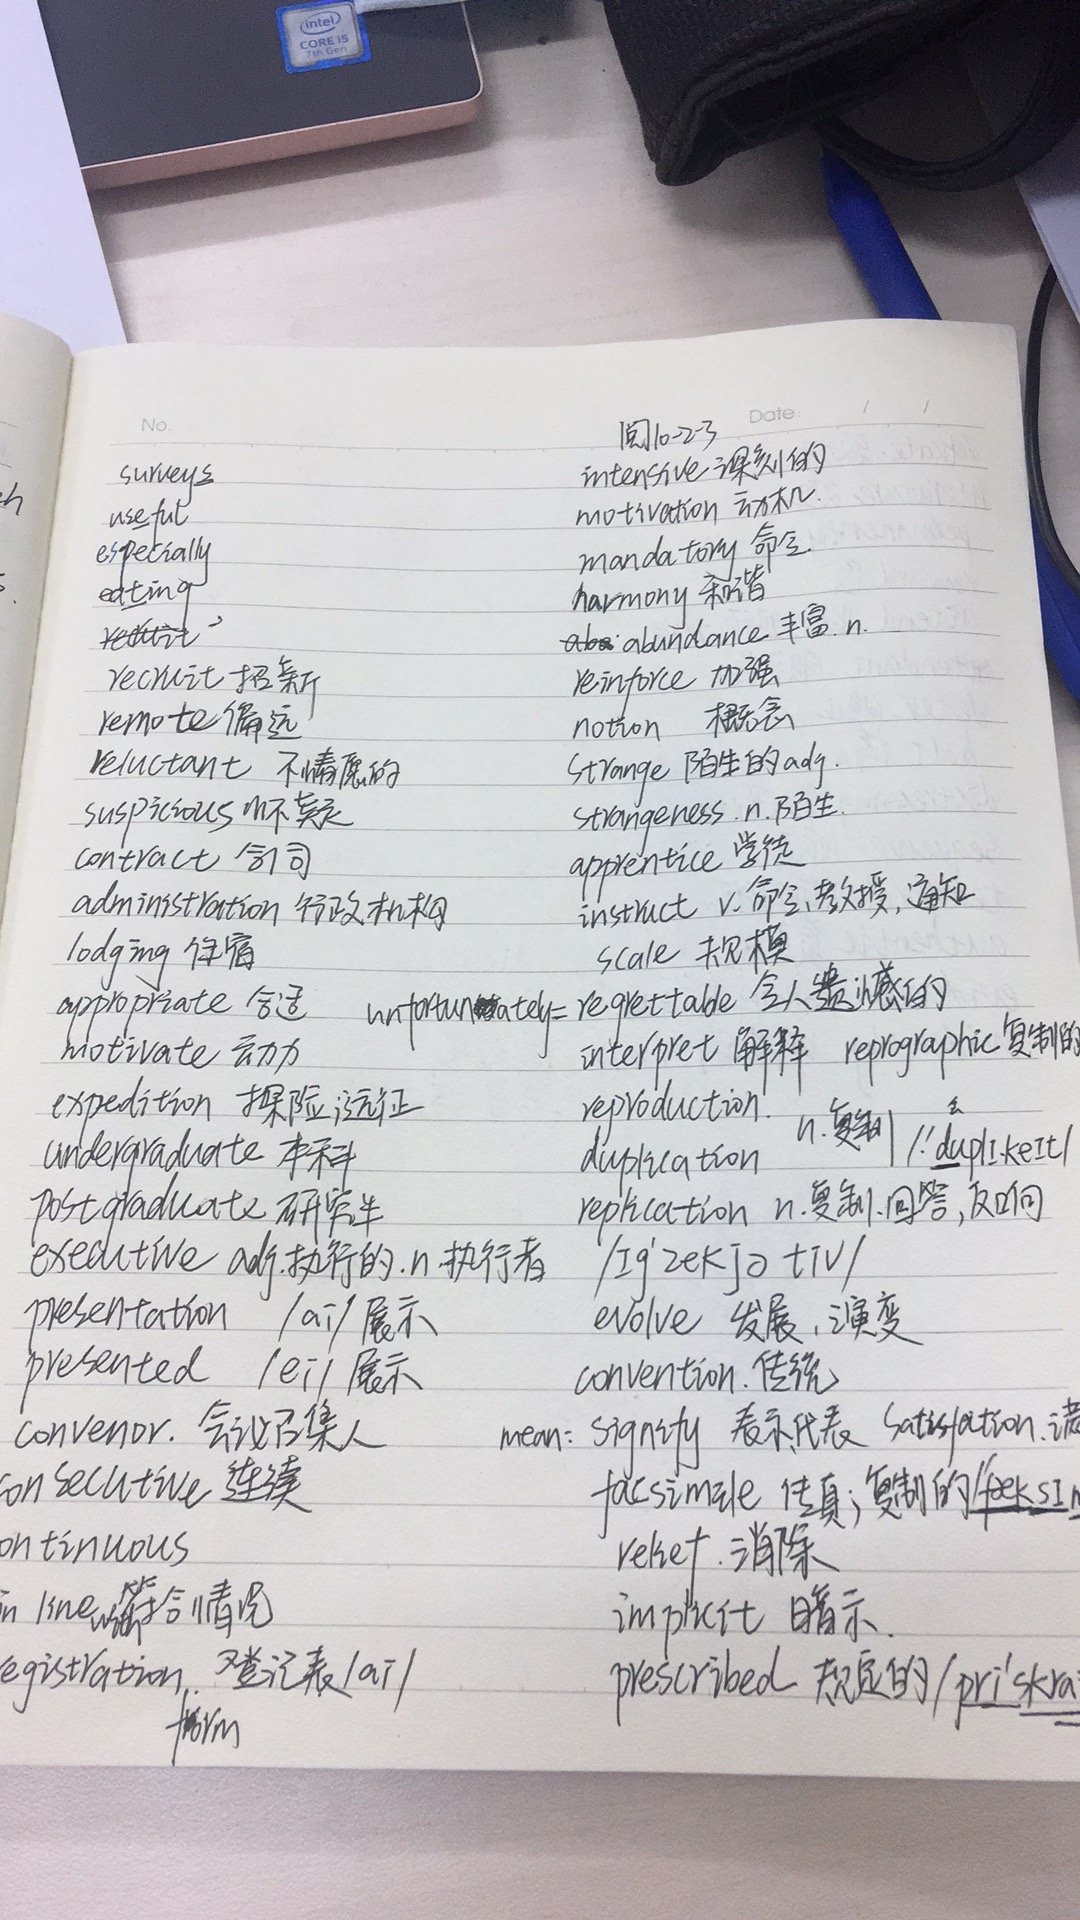 intel
CORE i5
7th Gen
No.
Date: / /
surveys
useful
especially
eating
recruit 招新
remote 偏远
reluctant 不情愿的
suspicious 怀疑
contract 合同
administration 行政机构
lodging 住宿
appropriate 合适
motivate 动力
expedition 探险,远征
undergraduate 本科
postgraduate 研究生
executive adj.执行的.n.执行者
presentation /ai/ 展示
presented /ei/ 展示
convenor. 会议召集人
consecutive 连续
ontinuous
in line with 符合情况
egistration 登记表/ai/
form
阅10-2-3
intensive 深刻的
motivation 动机.
mandatory 命令.
harmony 和谐
abundance 丰富.n.
reinforce 加强
notion 概念
strange 陌生的adj.
strangeness.n.陌生.
apprentice 学徒
instruct v.命令,教授,通知
scale 规模
unfortunately= regrettable 令人遗憾的
interpret 解释 reprographic 复制的
reproduction.
duplication n.复制 /ˈduplI.keIt/
replication n.复制.回答,反响
/Igˈzekjə tiv/
evolve 发展,演变
convention.传统
mean: signify 表示,代表 satisfation.满
facsimile 传真;复制的/fæksIm
relief.消除
implicit 暗示.
prescribed 规定的/priˈskrai